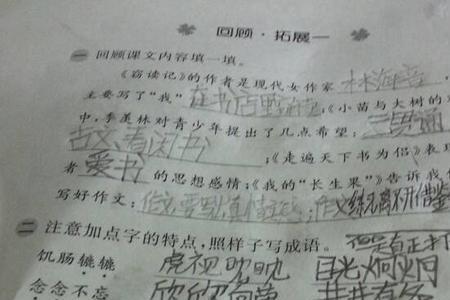 回顾·拓展一
一 回顾课文内容填一填。
《窃读记》的作者是现代女作家 林海音
主要写了“我”在书店里窃读;《小苗与大树的
中,季羡林对青少年提出了几点希望:三贯通
古文、看闲书;《走遍天下书为侣》表现
者 爱书 的思想感情;《我的“长生果”》告诉我
写好作文:作文要写真情实感;作文练离不开借鉴
二 注意加点字的特点,照样子写成语。
饥肠辘辘 虎视眈眈 目光炯炯
念念不忘 欣欣向荣 井井有条